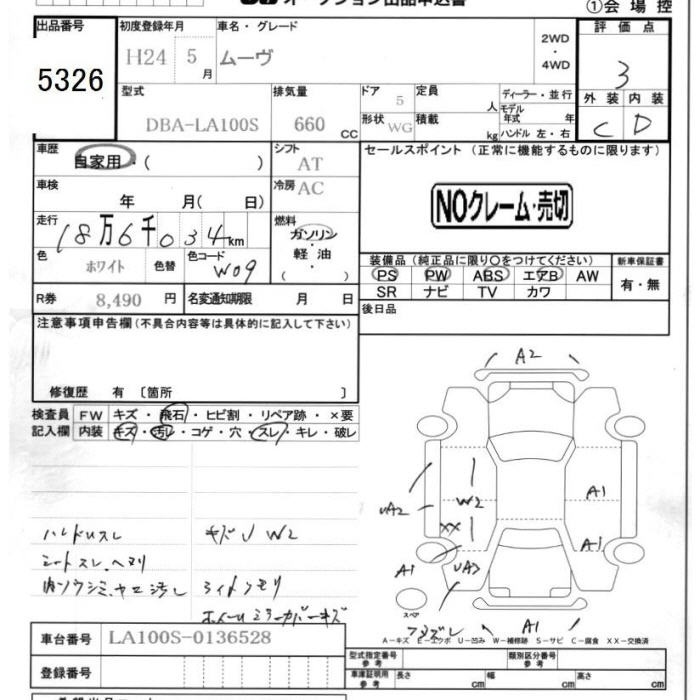 オークション出品申込書
①会場控
出品番号
5326
初度登録年月
H24 5 月
車名・グレード
ムーヴ
2WD
・
4WD
評価点
3
外装 内装
C D
型式
DBA-LA100S
排気量
660 CC
ドア 5
形状 WG
定員 人
積載 kg
ディーラー・並行
モデル年式 年
ハンドル 左・右
車歴
自家用・( )
シフト
AT
車検
年 月( 日)
冷房 AC
走行
18万6千034km
燃料
ガソリン
・
軽油
( )
色
ホワイト
色替
色コード
W09
R券 8,490 円
名変通知期限 月 日
セールスポイント (正常に機能するものに限ります)
NOクレーム・売切
装備品(純正品に限り○をつけてください)
PS PW ABS エアB AW
SR ナビ TV カワ
新車保証書
有・無
後日品
注意事項申告欄(不具合内容等は具体的に記入して下さい)
修復歴 有 〔箇所 〕
検査員 FW キズ・飛石・ヒビ割・リペア跡・×要
記入欄 内装 キズ・汚レ・コゲ・穴・スレ・キレ・破レ
ハンドルスレ
キズU W2
シートスレ、ヘタリ
ライトクモリ
ホイールミラーカバーキズ
A2
UA2
W2
XX
A1
A1
A1
UA3
A1
スペア
A－キズ E－エクボ U－凹み W－補修跡 S－サビ C－腐食 XX－交換済
車台番号 LA100S-0136528
登録番号
型式指定番号
参考
類別区分番号
参考
車庫証明用
参考
長さ cm 幅 cm 高さ cm